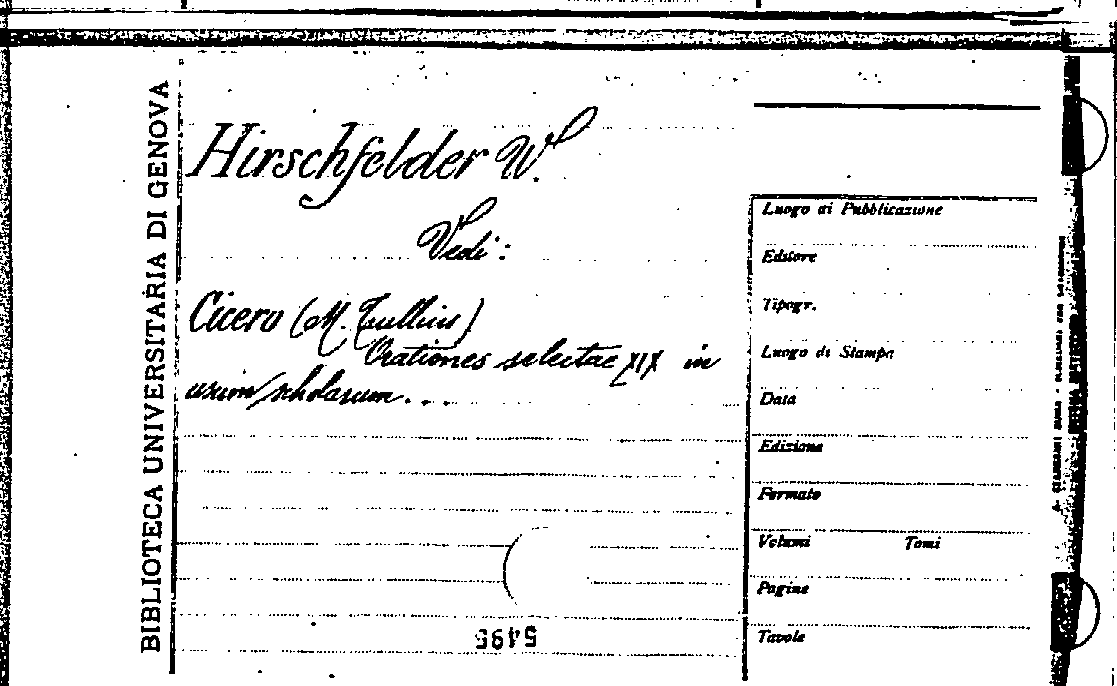 BIBLIOTECA UNIVERSITARIA DI GENOVA
Hirschfelder W.
Vedi:
Cicero (M. Tullius)
Orationes selectae XIX in
usum scholarum...
5495
Luogo di Pubblicazione
Editore
Tipogr.
Luogo di Stampa
Data
Edizione
Formato
Volumi Tomi
Pagine
Tavole